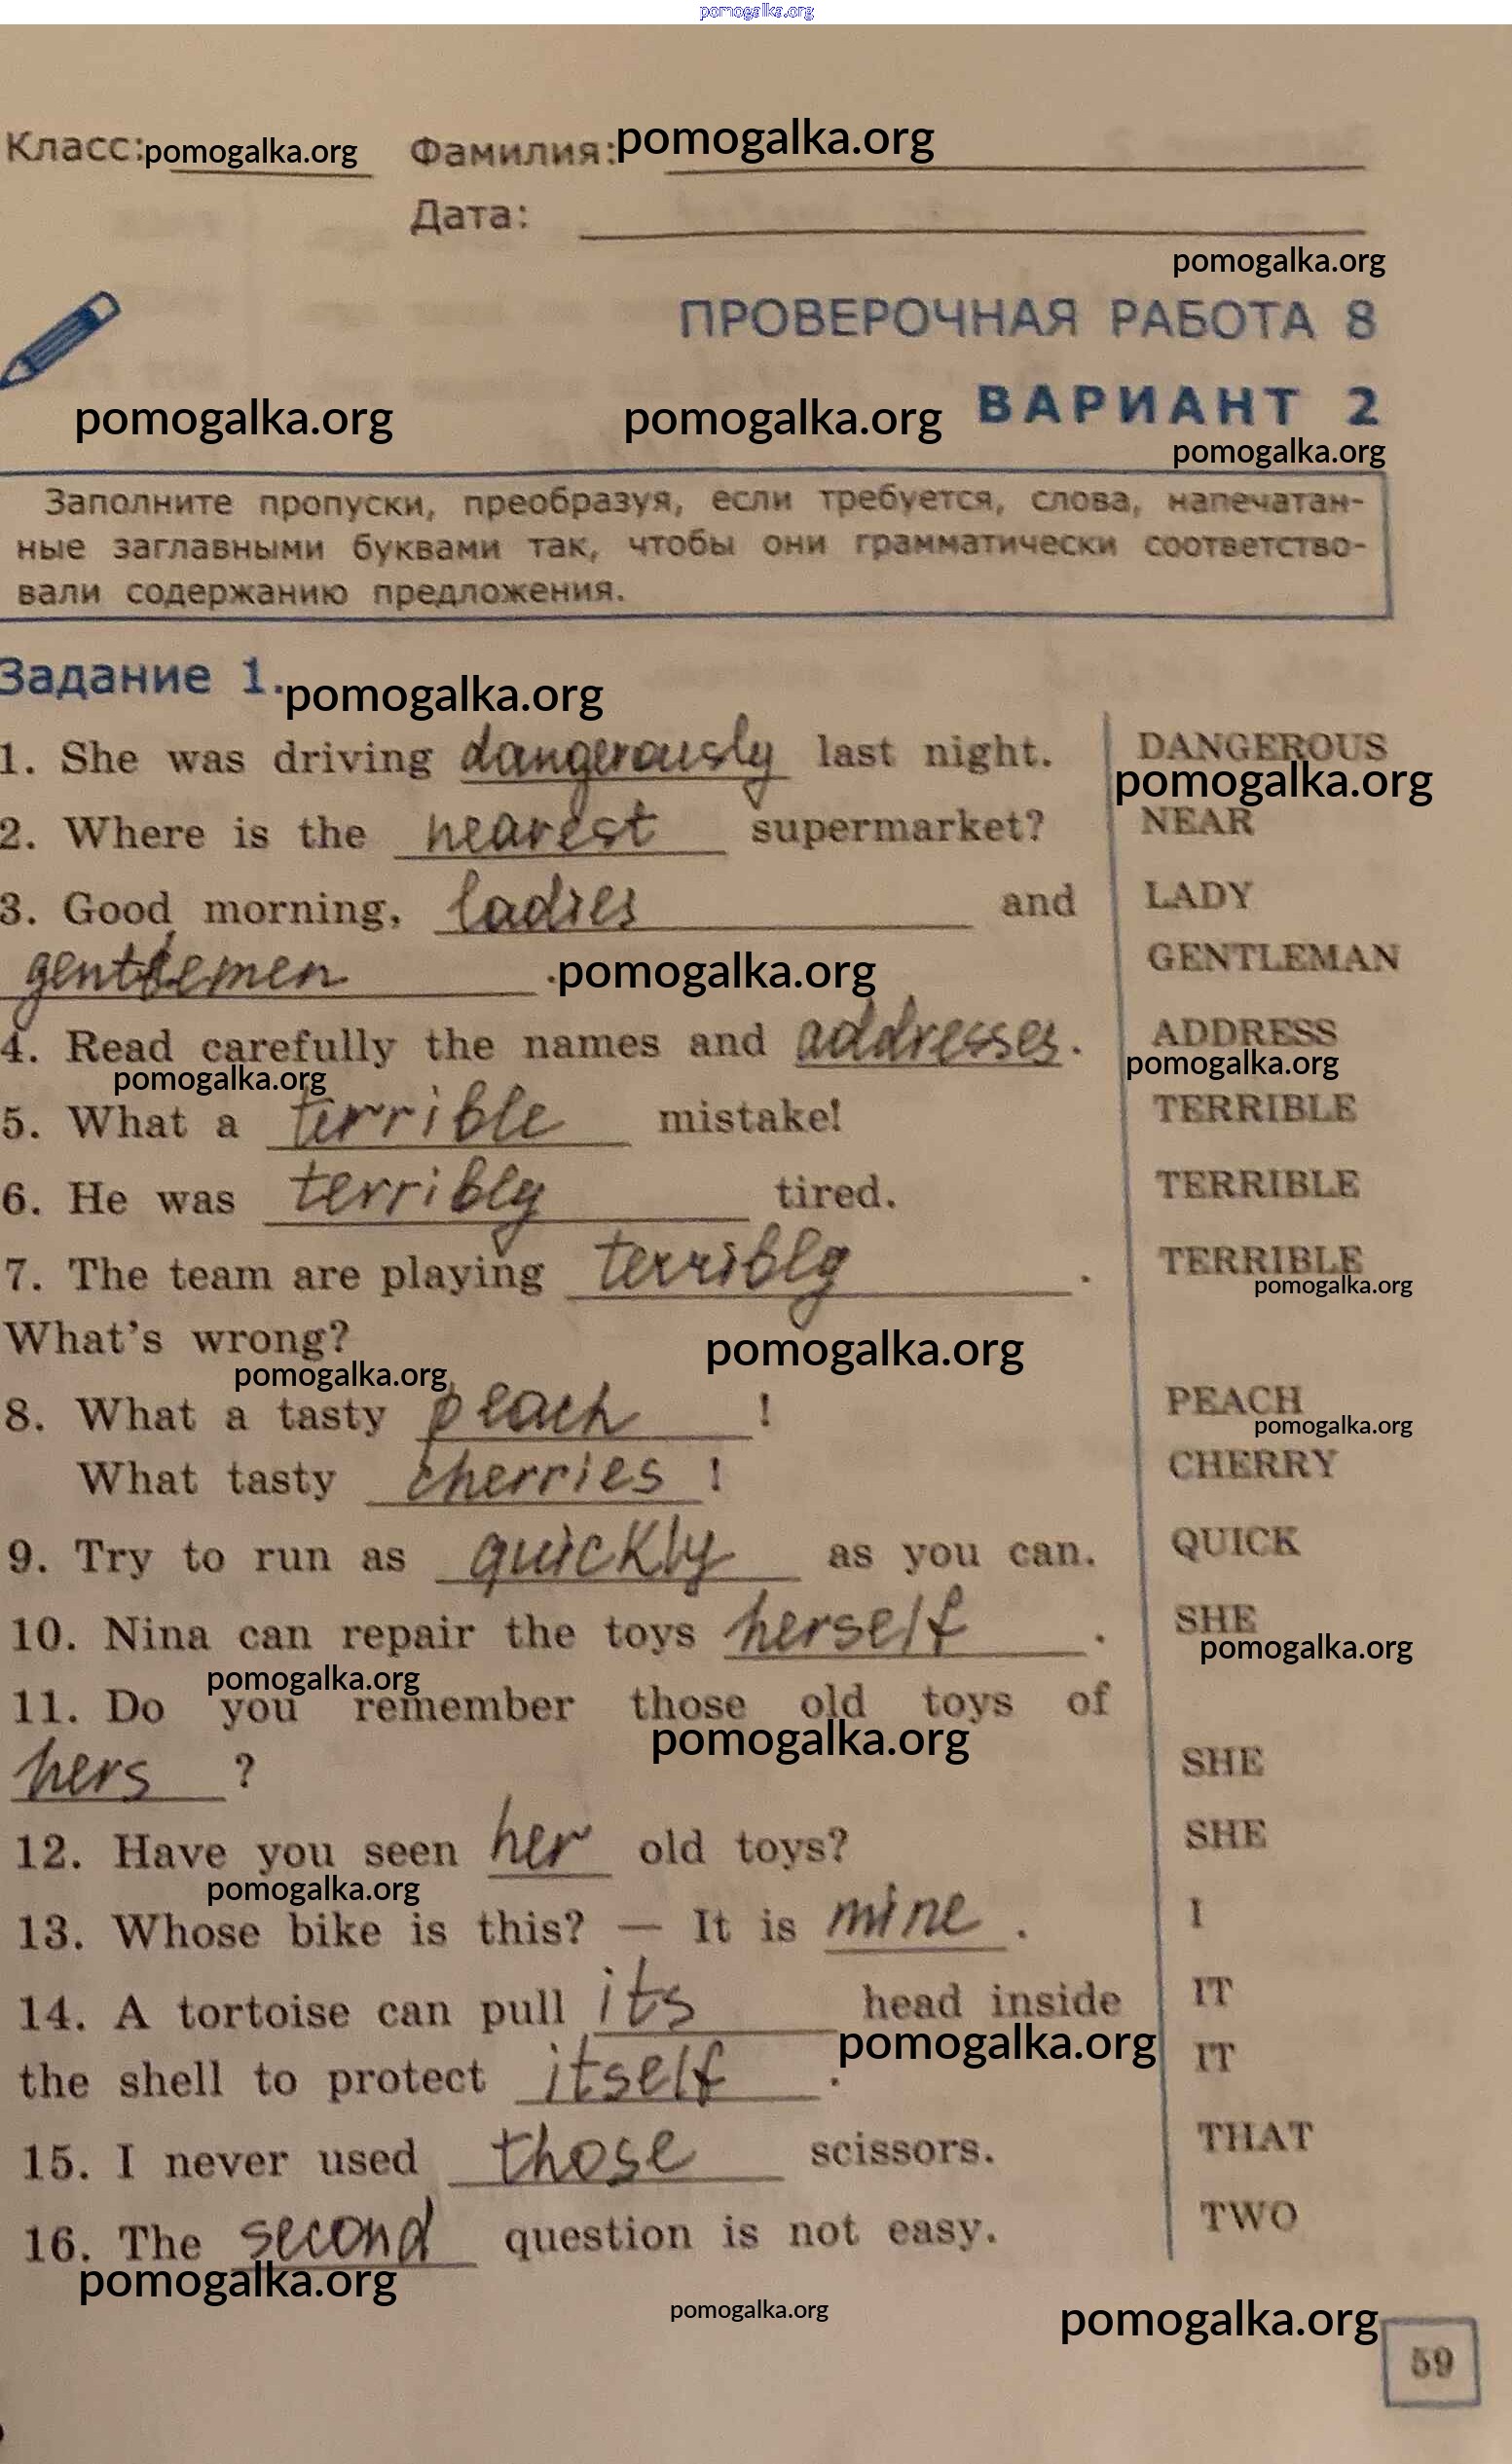 pomogalka.org
Класс: pomogalka.org Фамилия: pomogalka.org
Дата:
pomogalka.org
ПРОВЕРОЧНАЯ РАБОТА 8
pomogalka.org pomogalka.org ВАРИАНТ 2
pomogalka.org
Заполните пропуски, преобразуя, если требуется, слова, напечатан-
ные заглавными буквами так, чтобы они грамматически соответство-
вали содержанию предложения.
Задание 1. pomogalka.org
1. She was driving dangerously last night. DANGEROUS
pomogalka.org
2. Where is the nearest supermarket? NEAR
3. Good morning, ladies and LADY
gentlemen . pomogalka.org GENTLEMAN
4. Read carefully the names and addresses. ADDRESS
pomogalka.org pomogalka.org
5. What a terrible mistake! TERRIBLE
6. He was terribly tired. TERRIBLE
7. The team are playing terribly . TERRIBLE
pomogalka.org
What's wrong? pomogalka.org
pomogalka.org
8. What a tasty peach ! PEACH
pomogalka.org
What tasty cherries ! CHERRY
9. Try to run as quickly as you can. QUICK
10. Nina can repair the toys herself . SHE
pomogalka.org
pomogalka.org
11. Do you remember those old toys of
pomogalka.org
hers ? SHE
12. Have you seen her old toys? SHE
pomogalka.org
13. Whose bike is this? — It is mine . I
14. A tortoise can pull its head inside IT
pomogalka.org
the shell to protect itself . IT
15. I never used those scissors. THAT
16. The second question is not easy. TWO
pomogalka.org
pomogalka.org pomogalka.org
59